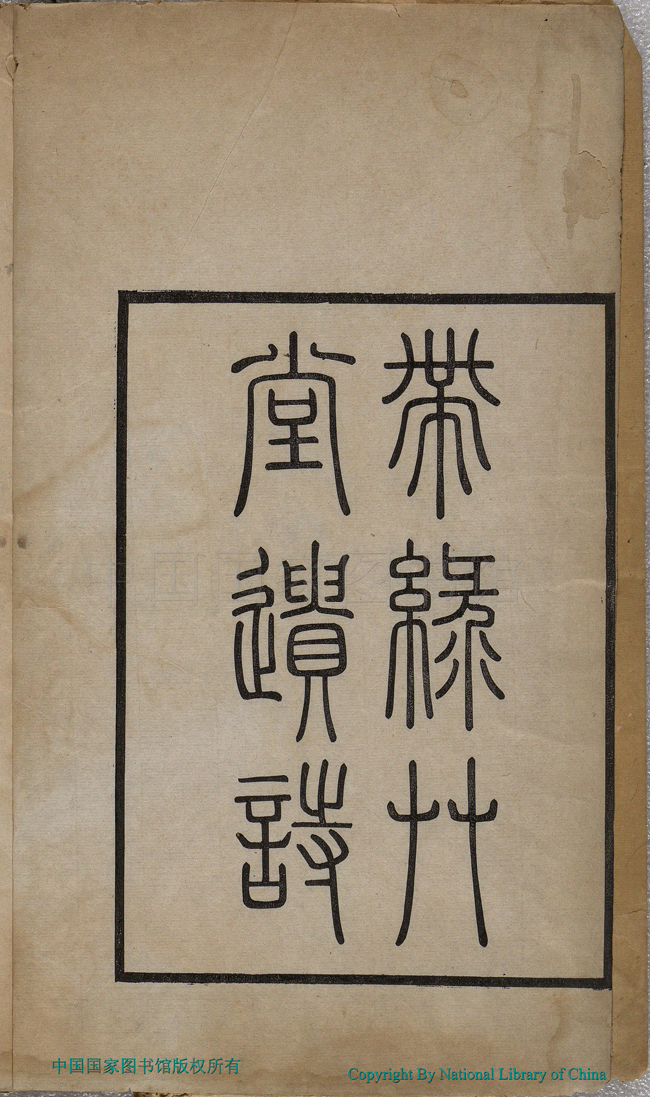 帶綠艸
堂遺詩
中国国家图书馆版权所有
Copyright By National Library of China